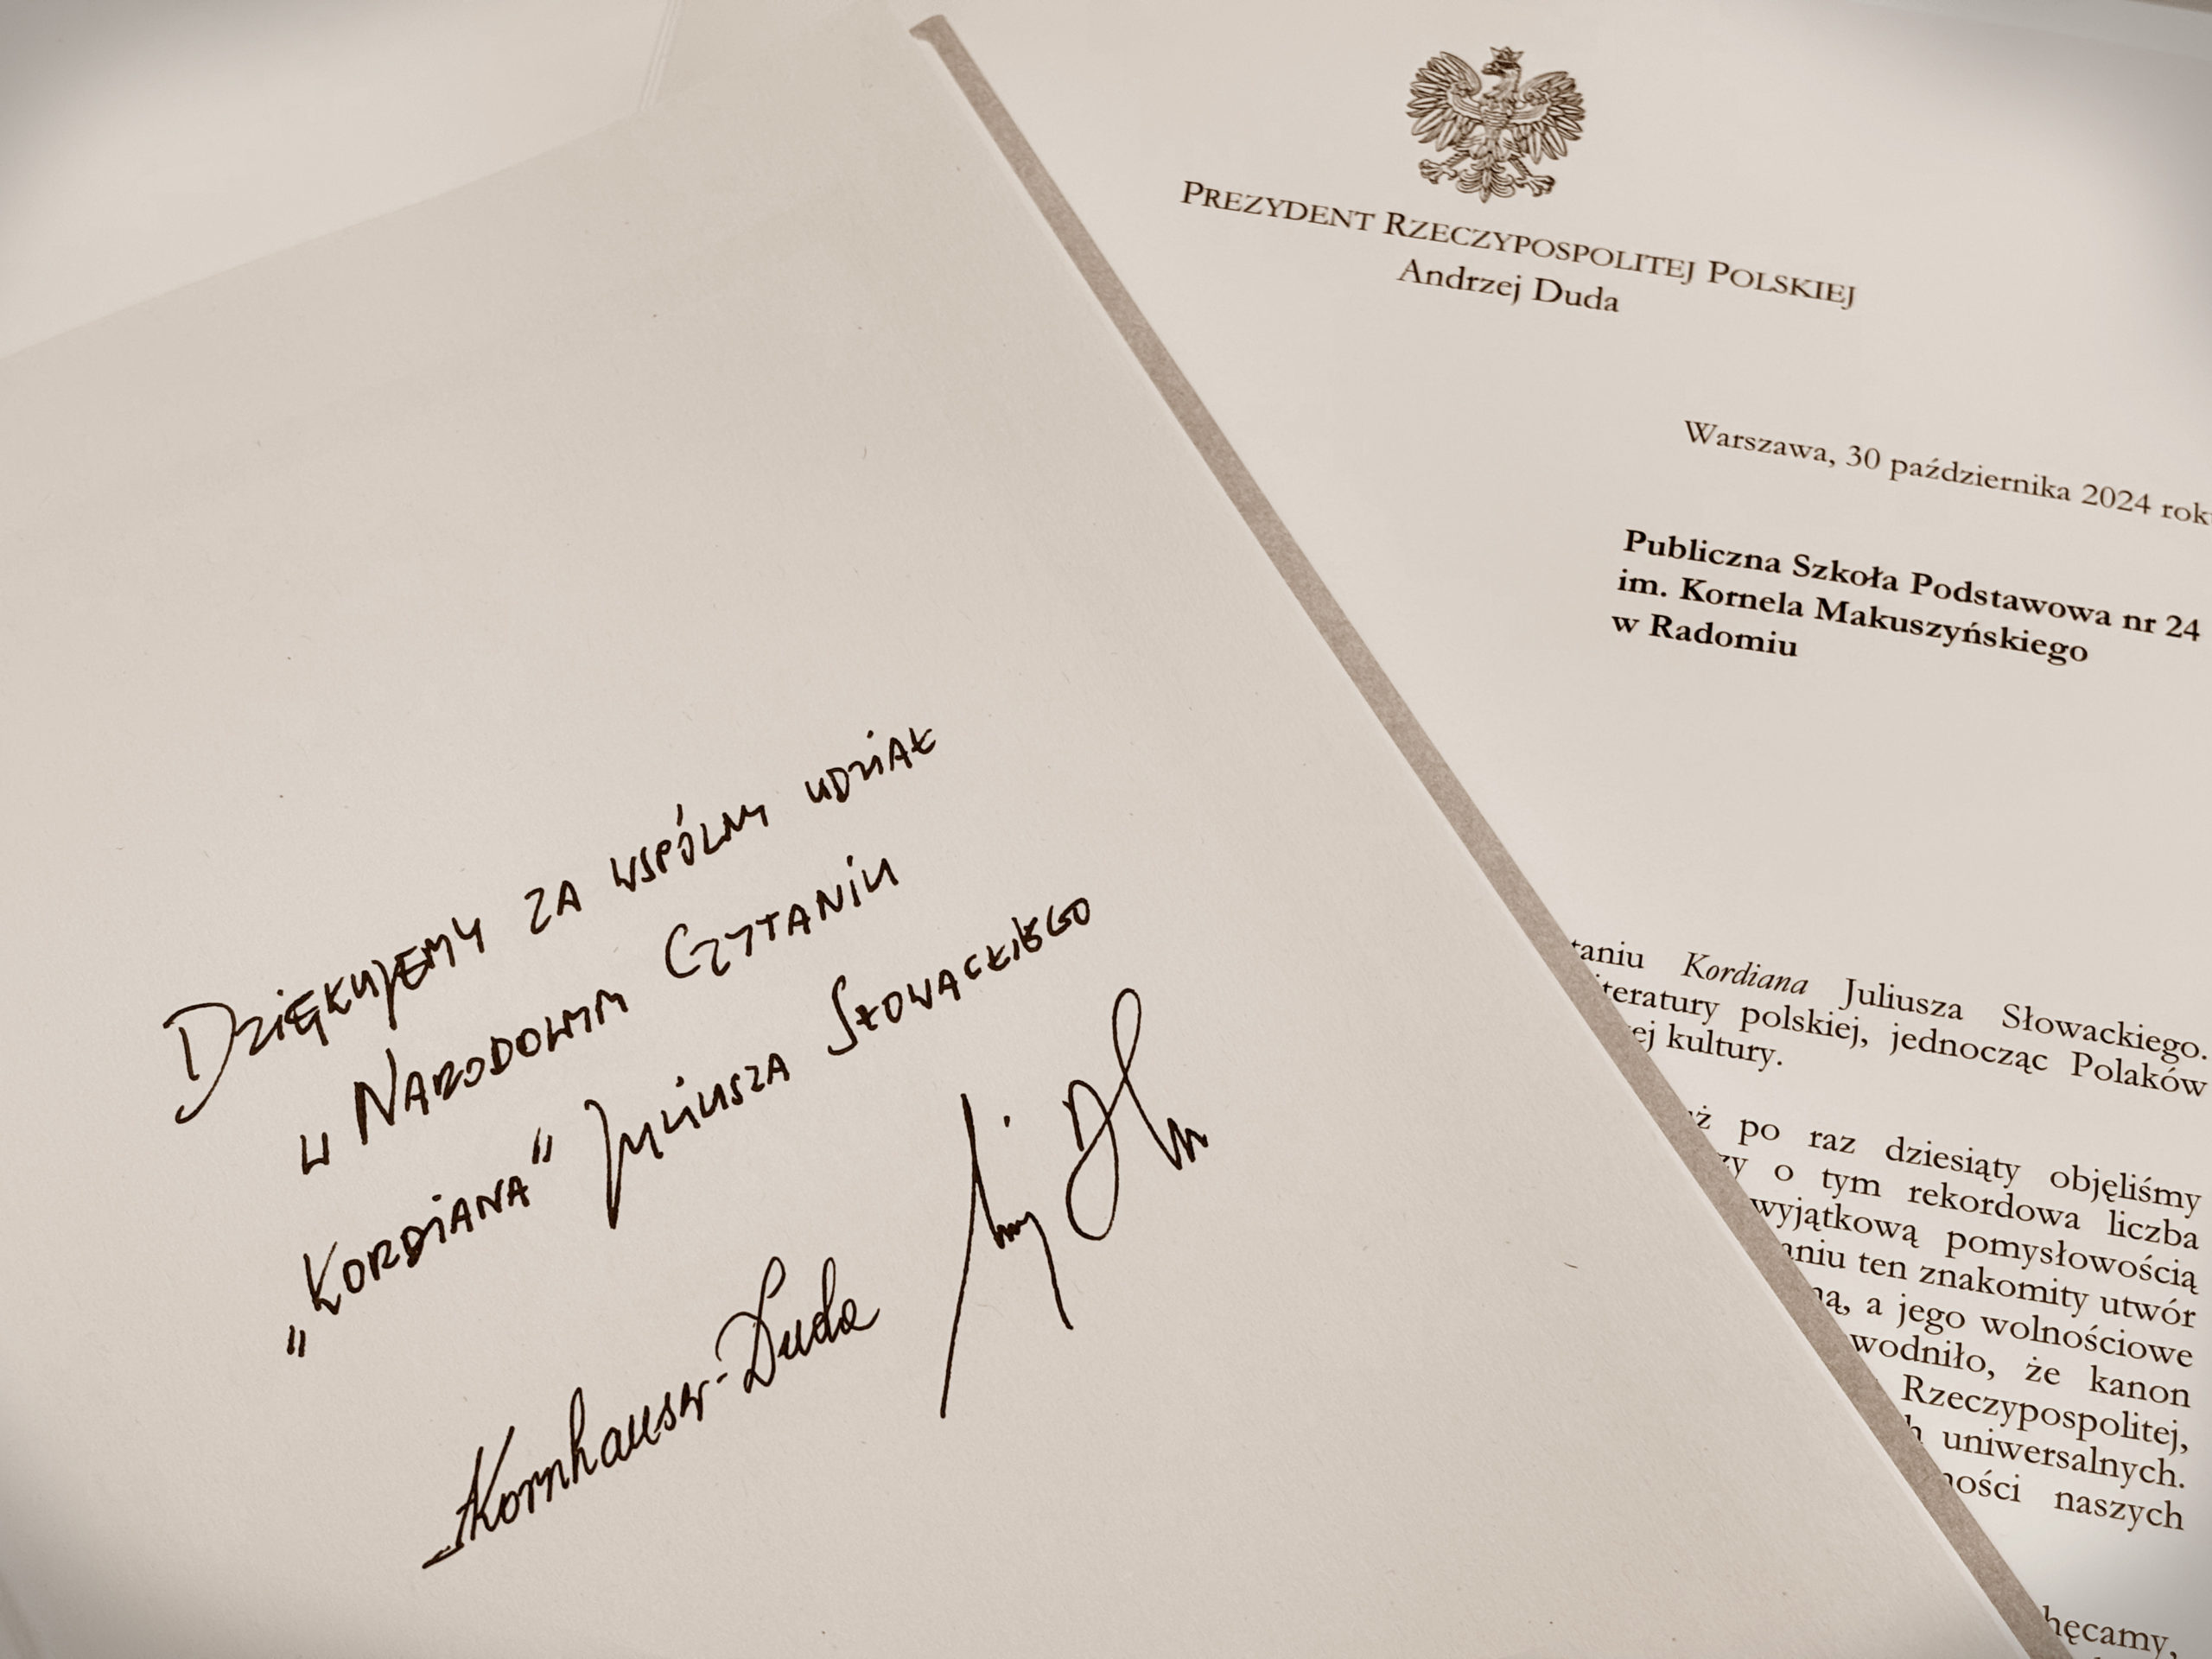 Dziękujemy za wspólny udział
w Narodowym Czytaniu
„Kordiana" Juliusza Słowackiego
Kornhauser-Duda
PREZYDENT RZECZYPOSPOLITEJ POLSKIEJ
Andrzej Duda
Warszawa, 30 października 2024
Publiczna Szkoła Podstawowa nr 24
im. Kornela Makuszyńskiego
w Radomiu
Kordiana Juliusza Słowackiego.
polskiej, jednocząc Polaków
kultury.
po raz dziesiąty objęliśmy
o tym rekordowa liczba
wyjątkową pomysłowością
ten znakomity utwór
a jego wolnościowe
że kanon
Rzeczypospolitej,
uniwersalnych.
naszych